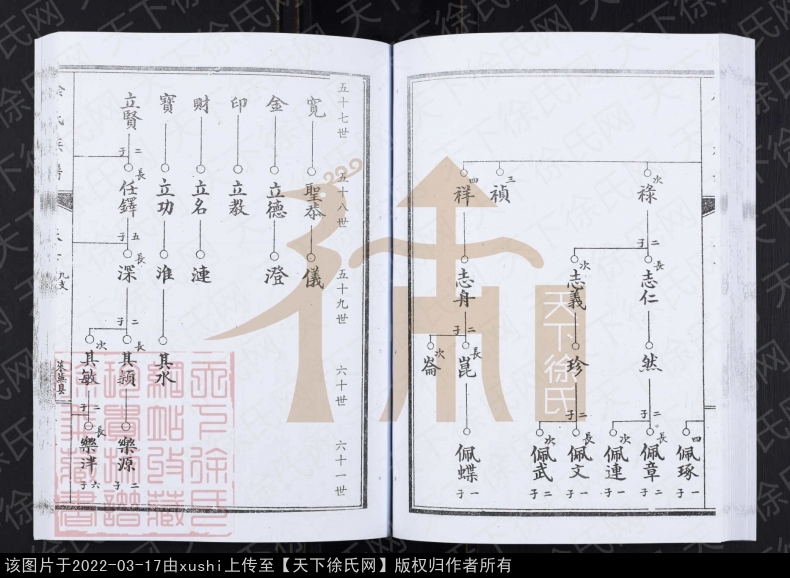 次
祿
三
禎
四
祥
子二
長
志仁
次
志義
志舟
然
珍
子二
長
崑
次
崙
四
佩琢
子一
子二
長
佩章
子二
次
佩連
子一
子二
長
佩文
子一
次
佩武
子二
佩蝶
子一
五十七世
五十八世
五十九世
六十世
六十一世
寬
聖恭
儀
金
立德
澄
印
立教
財
立名
漣
寶
立功
淮
其水
立賢
子二
長
任鐸
子五
長
深
子二
長
其穎
次
其敏
樂源
子二
子二
長
樂津
子六
徐氏族譜
九支
萊蕪县
天下徐氏
天下徐氏网
该图片于2022-03-17由xushi上传至【天下徐氏网】版权归作者所有